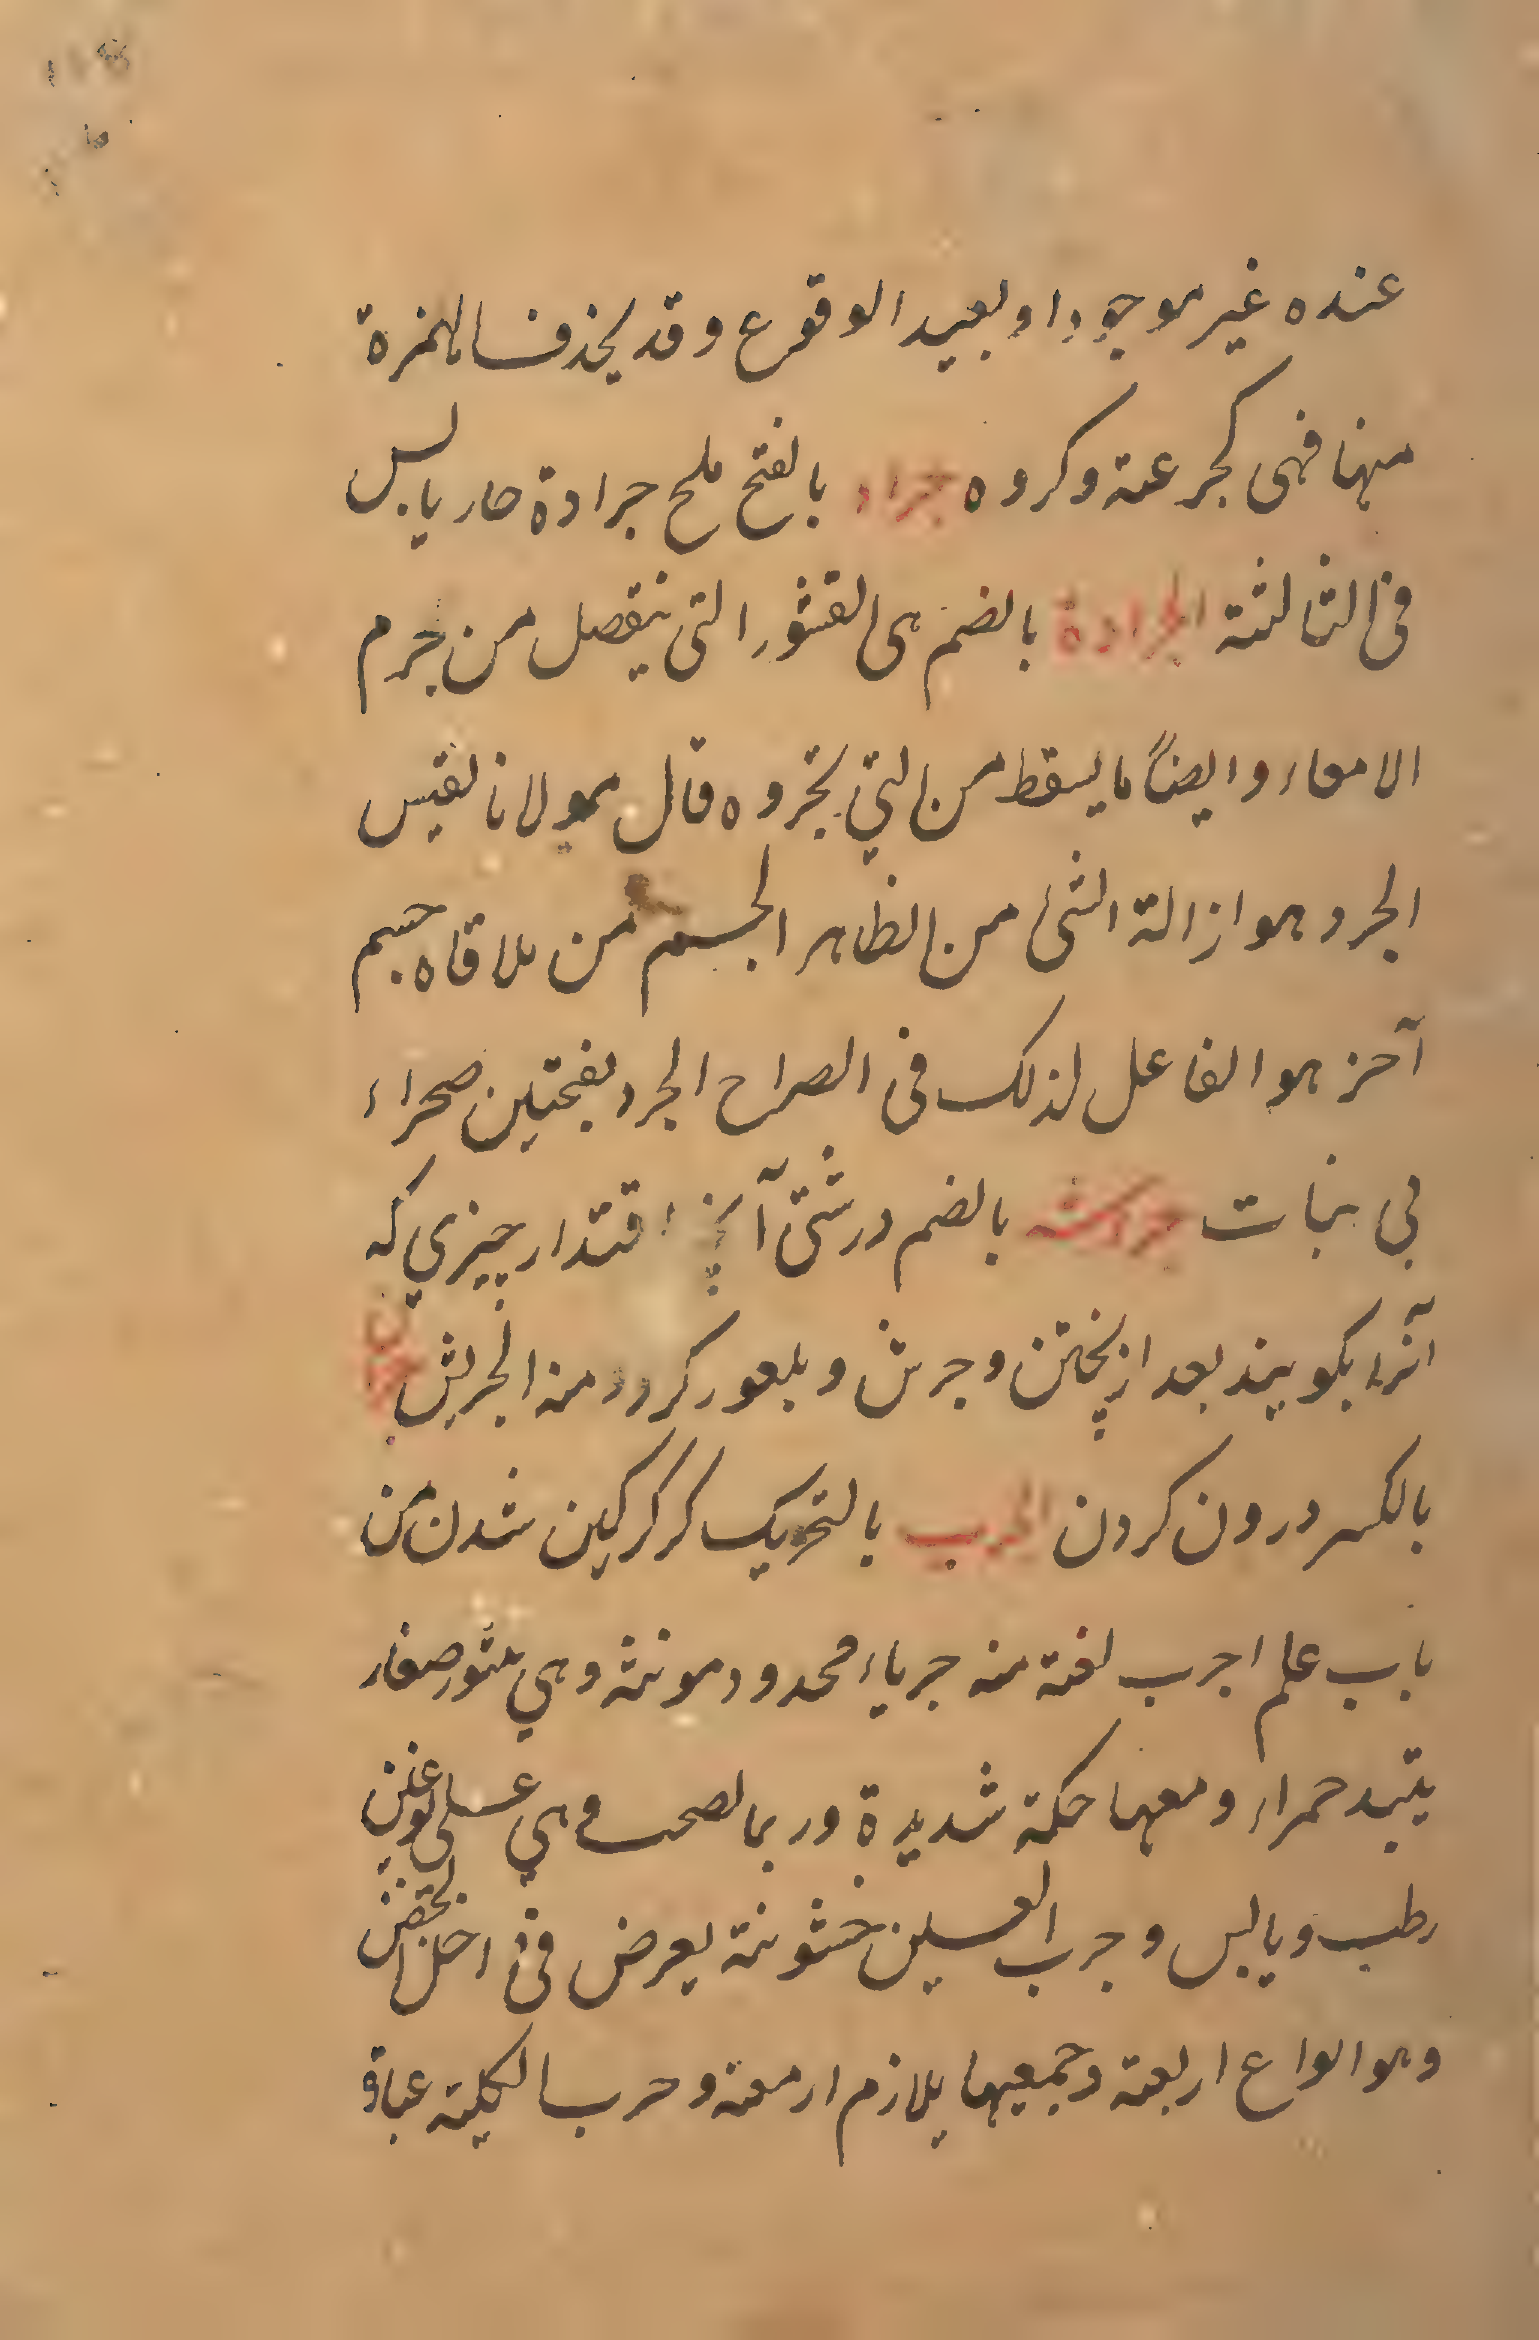 عنده غير موجود او بعيد الوقوع وقد يحذف الهمزة
منها فهى كجرعة وكروه جراد بالفتح ملخ جرادة حار يابس
فى الثالثة الجرادة بالضم هى القشور التى ينفصل من جرم
الامعاء وايضاً ما يسقط من التي تجروه قال مولانا نفيس
الجرد هو ازالة الشئ من الظاهر الجسم من ملاقاه جسم
آخر هو الفاعل لذلك فى الصراح الجرد بفتحتين صحراء
بى نبات بالضم درشتى آنچه اقتدار چيزي كه
آنرا بكوبيند بعد از پختن وجرش و بلعور كردد منه الجريش
بالكسر درون كردن الجرب بالتحريك كركركين شدن من
باب علم اجرب لغة منه جرباء ممدود مونثه وهي بثور صغار
يبتد حمراء ومعها حكة شديدة وربما وهي على نوعين
رطب ويابس وجرب العين خشونة يعرض فى داخل الجفن
وهو انواع اربعة وجميعها يلازم ارمعة وجرب الكلية عبارة